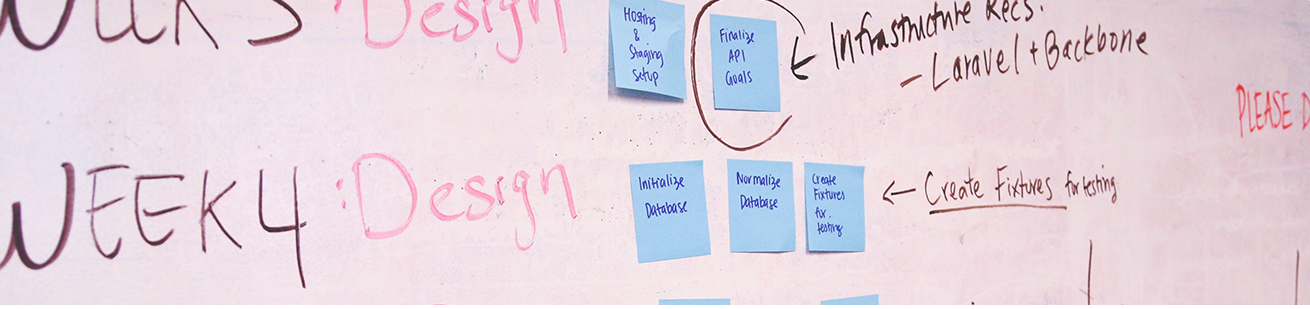 WEEK 3 : Design
Hosting
&
Staging
Setup
Finalize
API
Goals
← Infrastructure Recs.
- Laravel + Backbone
PLEASE D
WEEK 4 : Design
Initialize
Database
Normalize
Database
Create
Fixtures
for
testing
← Create Fixtures for testing